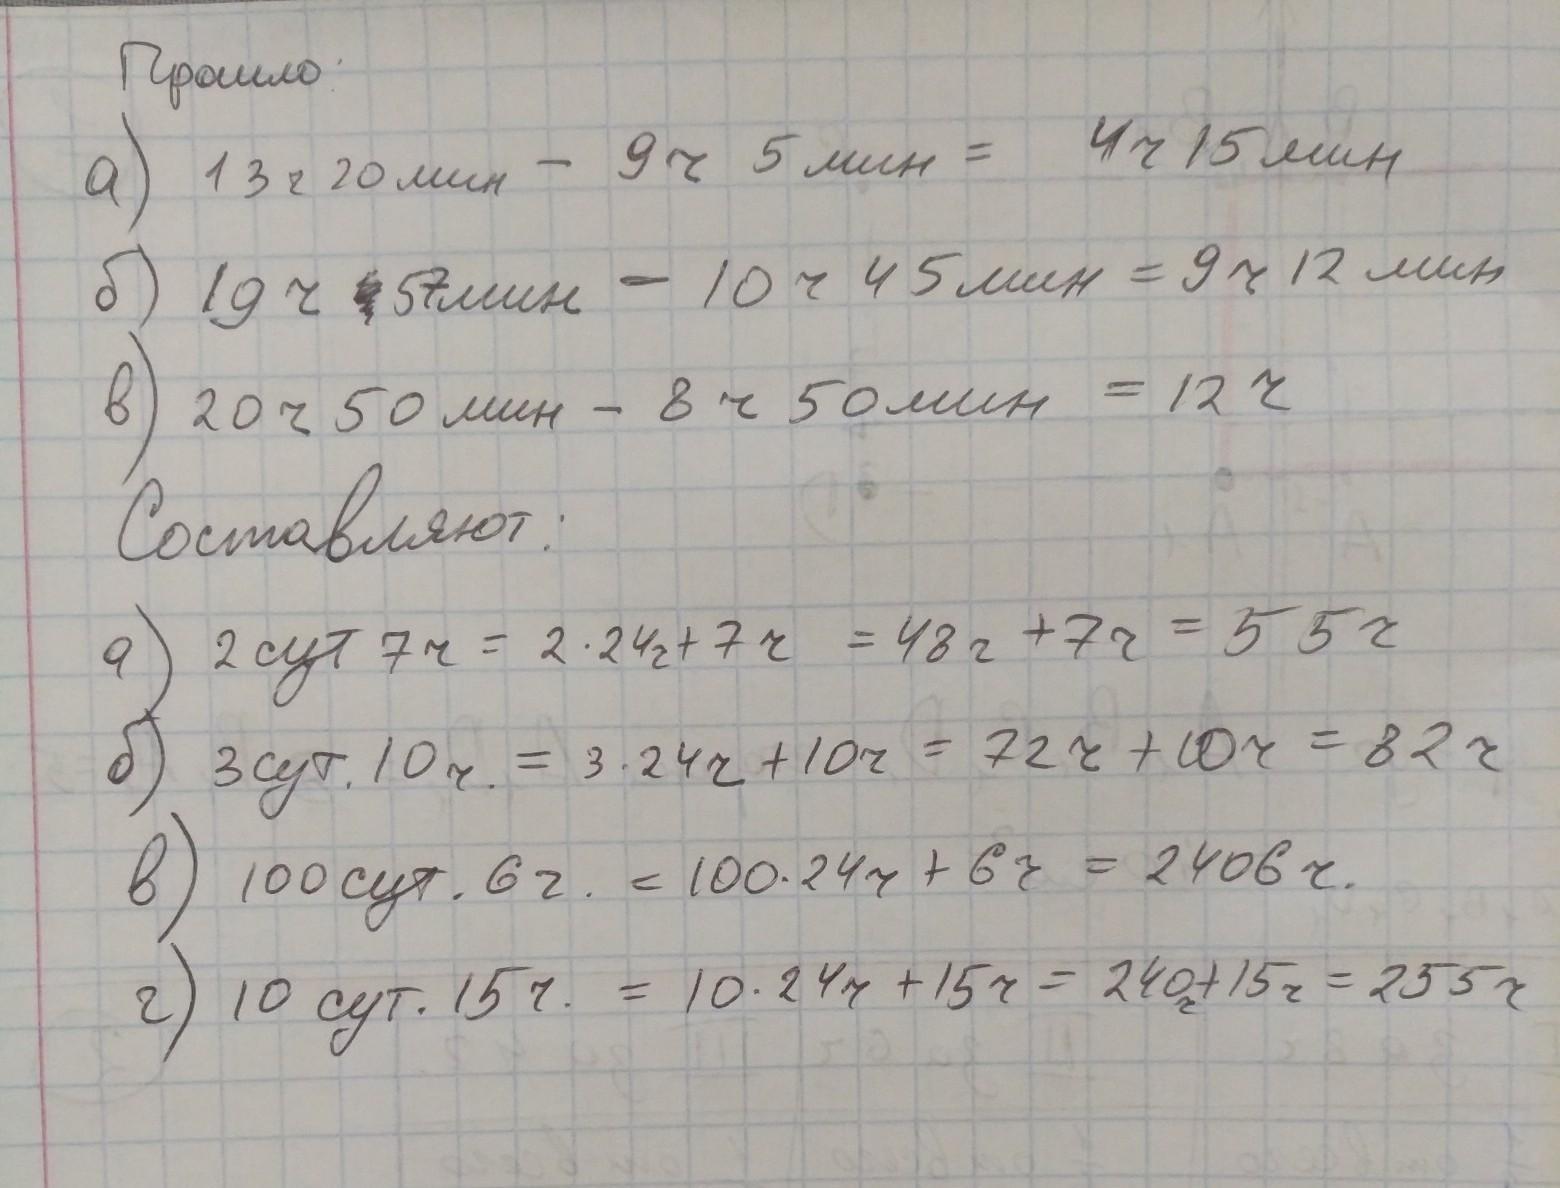 Прошло:
а) 13 ч 20 мин - 9 ч 5 мин = 4 ч 15 мин
б) 19 ч 57 мин - 10 ч 45 мин = 9 ч 12 мин
в) 20 ч 50 мин - 8 ч 50 мин = 12 ч
Составляют:
а) 2 сут 7 ч = 2·24ч + 7 ч = 48 ч + 7 ч = 55 ч
б) 3 сут. 10 ч. = 3·24 ч + 10 ч = 72 ч + 10 ч = 82 ч
в) 100 сут. 6 ч. = 100·24 ч + 6 ч = 2406 ч.
г) 10 сут. 15 ч. = 10·24 ч + 15 ч = 240ч + 15 ч = 255 ч